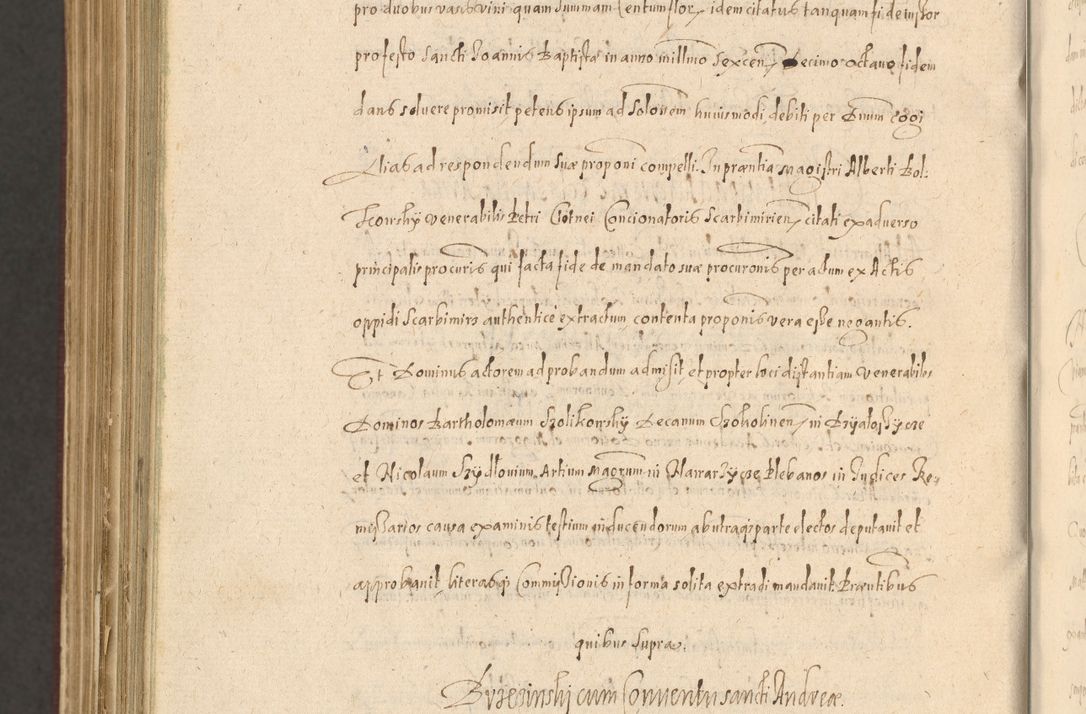 pro duobus vasis vini quam summam Centum flor, idem citatus tanquam fideiussor
pro festo Sancti Joannis Baptistæ in anno millmo Sexcen, Decimo octavo fidem
dans solvere promisit, petens ipsum ad solonem huiusmodi debiti per Dnum cogi
Alias ad respondendum suæ proponi compelli. In præntia Magistri Alberti Bol:
kowsky venerabilis Petri Concionatoris Scarbimirien, citati ex adverso
principalis procuris qui facta fide de mandato suæ procuronis per actum ex Actis
oppidi Scarbimirs authentice extractum, contenta proponis vera esse negantis.
Et Dominus actorem ad probandum admisit, et propter loci distantiam Venerabiles
Dominos Bartholomæum Szolikowsky Decanum in
et Nicolaum Szydlovium Artium Magrum in Plebanos in Judices Re-
missarios causa examinis testium inducendorum ab utraq; parte electos deputavit et
approbavit, literasq; Commissionis in forma solita extradi mandavit. Præntibus
quibus supra.
Brzezinsky cum Conventu sancti Andreæ.